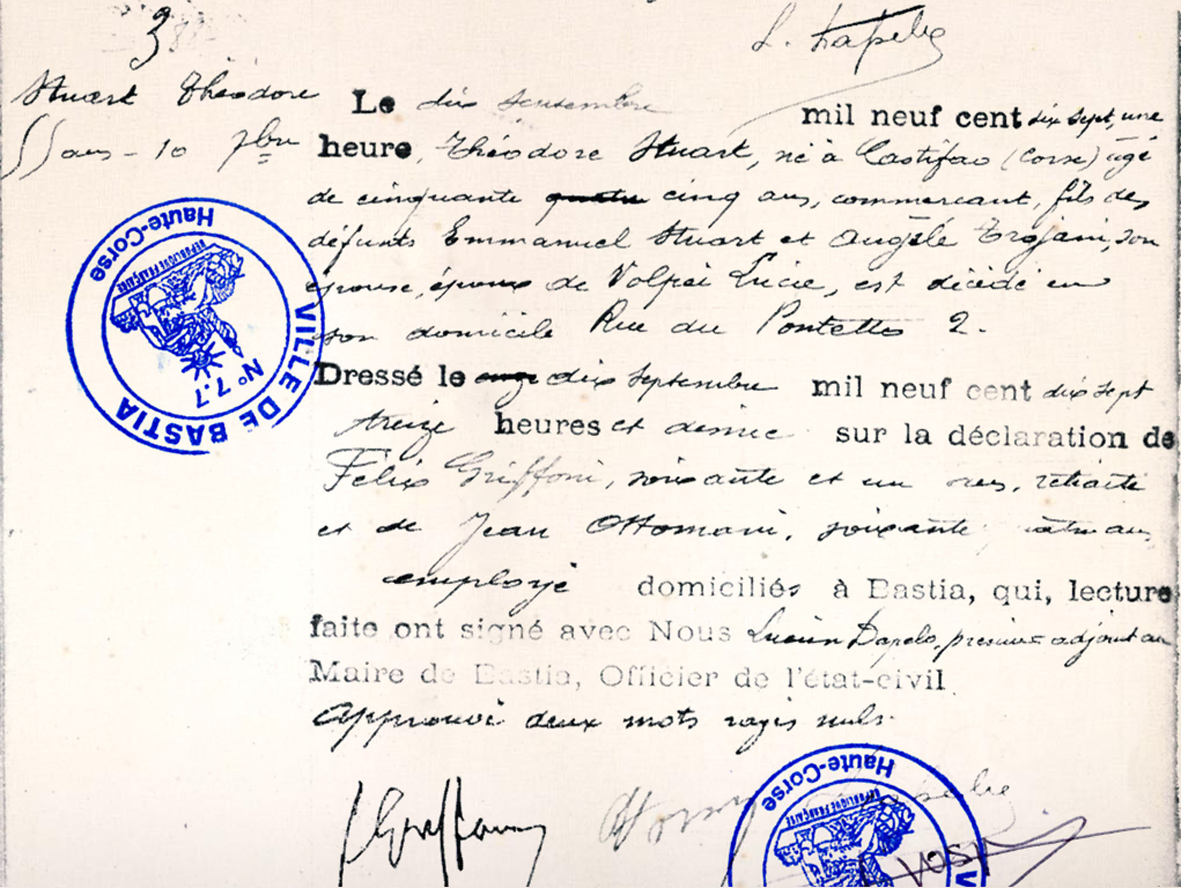 3
L. Dapelo
Stuart Théodore
55 ans - 10 7bre
Le dix septembre mil neuf cent dix sept, une
heure, Théodore Stuart, né à Castifao (Corse) agé
de cinquante quatre cinq ans, commercant, fils des
défunts Emmanuel Stuart et Angèle Trojani, son
épouse, époux de Volpei Lucie, est décédé en
son domicile Rue du Pontetto 2.
Dressé le onze dix septembre mil neuf cent dix sept
treize heures et demie sur la déclaration de
Félix Griffoni, soixante et un ans, retraité
et de Jean Ottomani, soixante quatre ans
employé domiciliés à Bastia, qui, lecture
faite ont signé avec Nous Lucien Dapelo, premier adjoint au
Maire de Bastia, Officier de l'état-civil
Approuvé deux mots rayés nuls.
VILLE DE BASTIA
Haute-Corse
REPUBLIQUE FRANÇAISE
N° 7.7
Griffoni
Haute-Corse
REPUBLIQUE FRANÇAISE